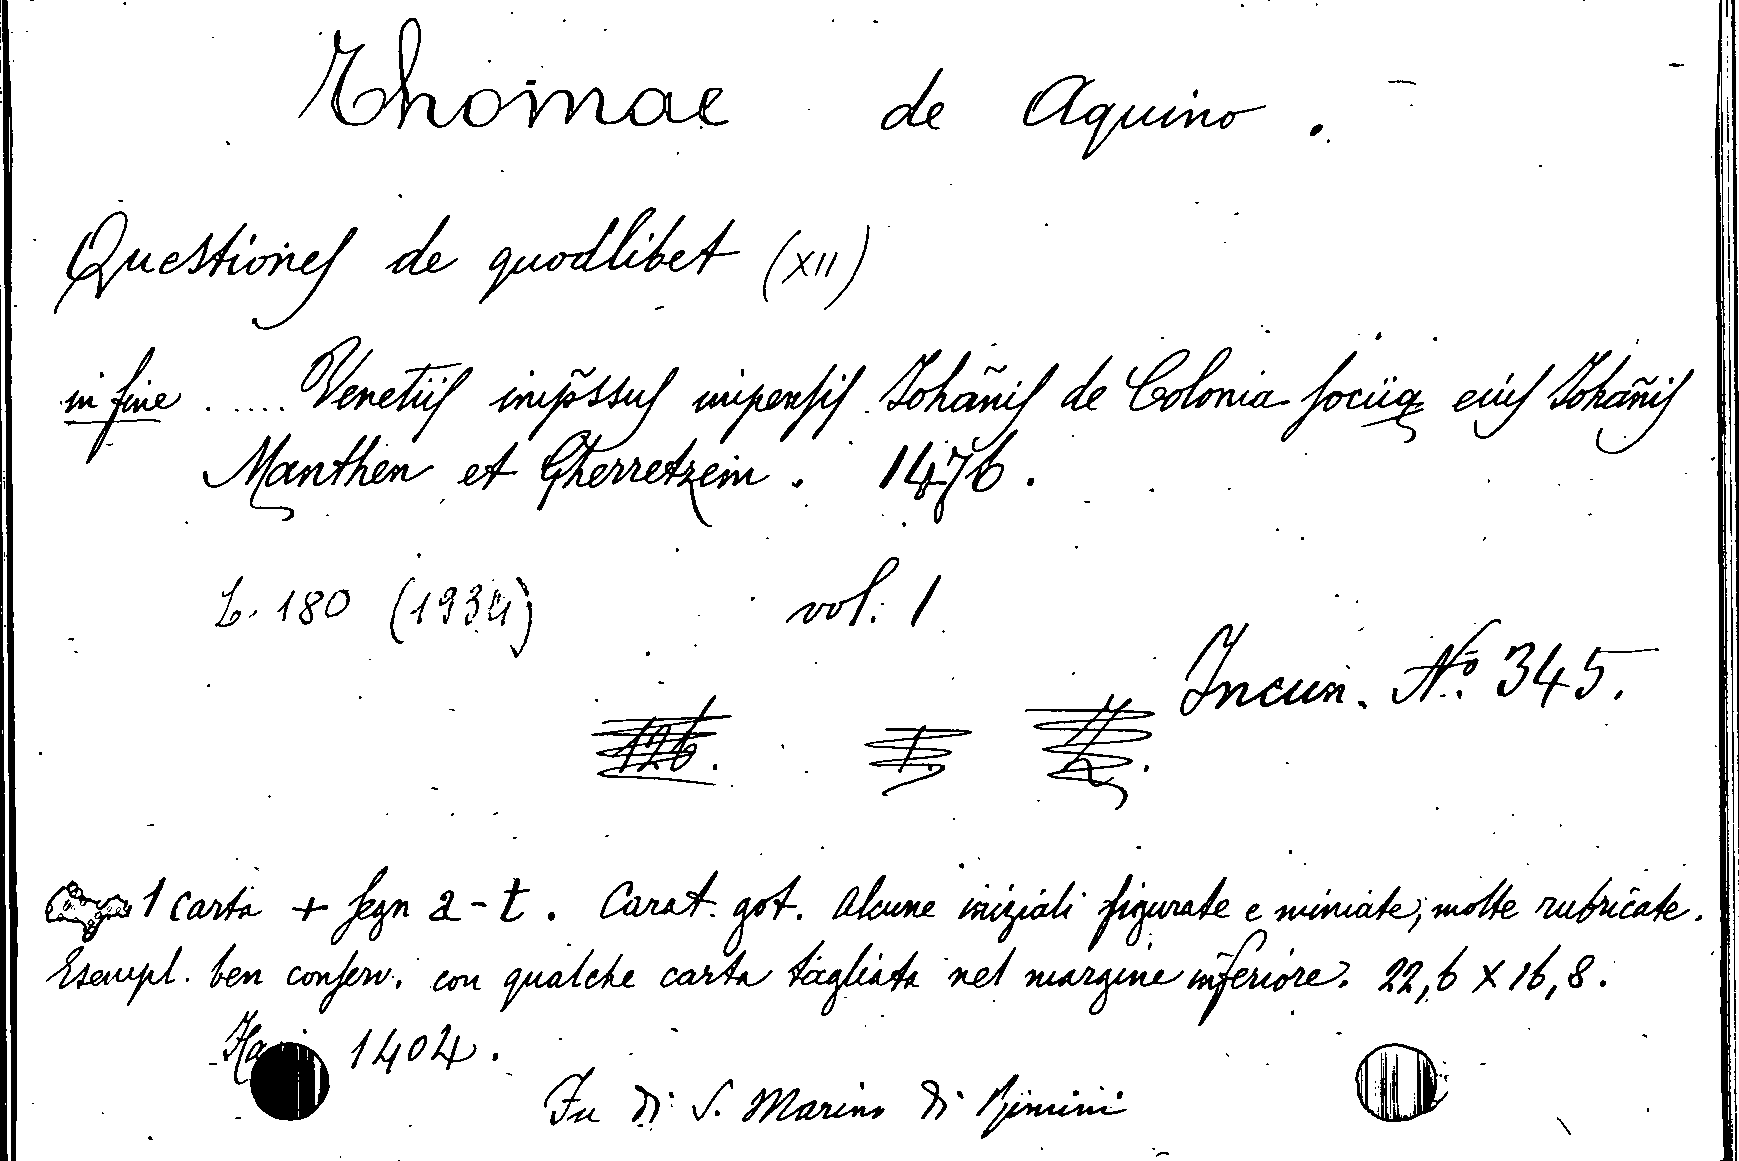 Thomae de Aquino.
Questiones de quodlibet (XII)
in fine ..... Venetiis imp̃ssus impensis Johãnis de Colonia sociiq eius Johãnis
Manthen et Gherretzem. 1476.
L. 180 (1934) vol. 1
Incun. Nº 345.
126. 1. 
1 carta + segn a-t. Carat. got. Alcune iniziali figurate e miniate, molte rubricate.
Esempl. ben conserv. con qualche carta tagliata nel margine inferiore. 22,6 x 16,8.
Ha 1404.
Fu di S. Marino di Rimini